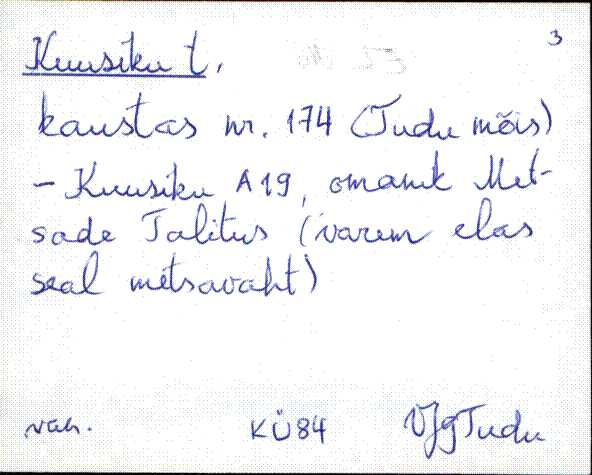 3
Kuusiku t.
kaustas nr. 174 (Tudu mõis)
– Kuusiku A19, omanik Met-
sade Talitus (varem elas
seal metsavaht)
vah. KÜ84 VJg Tudu